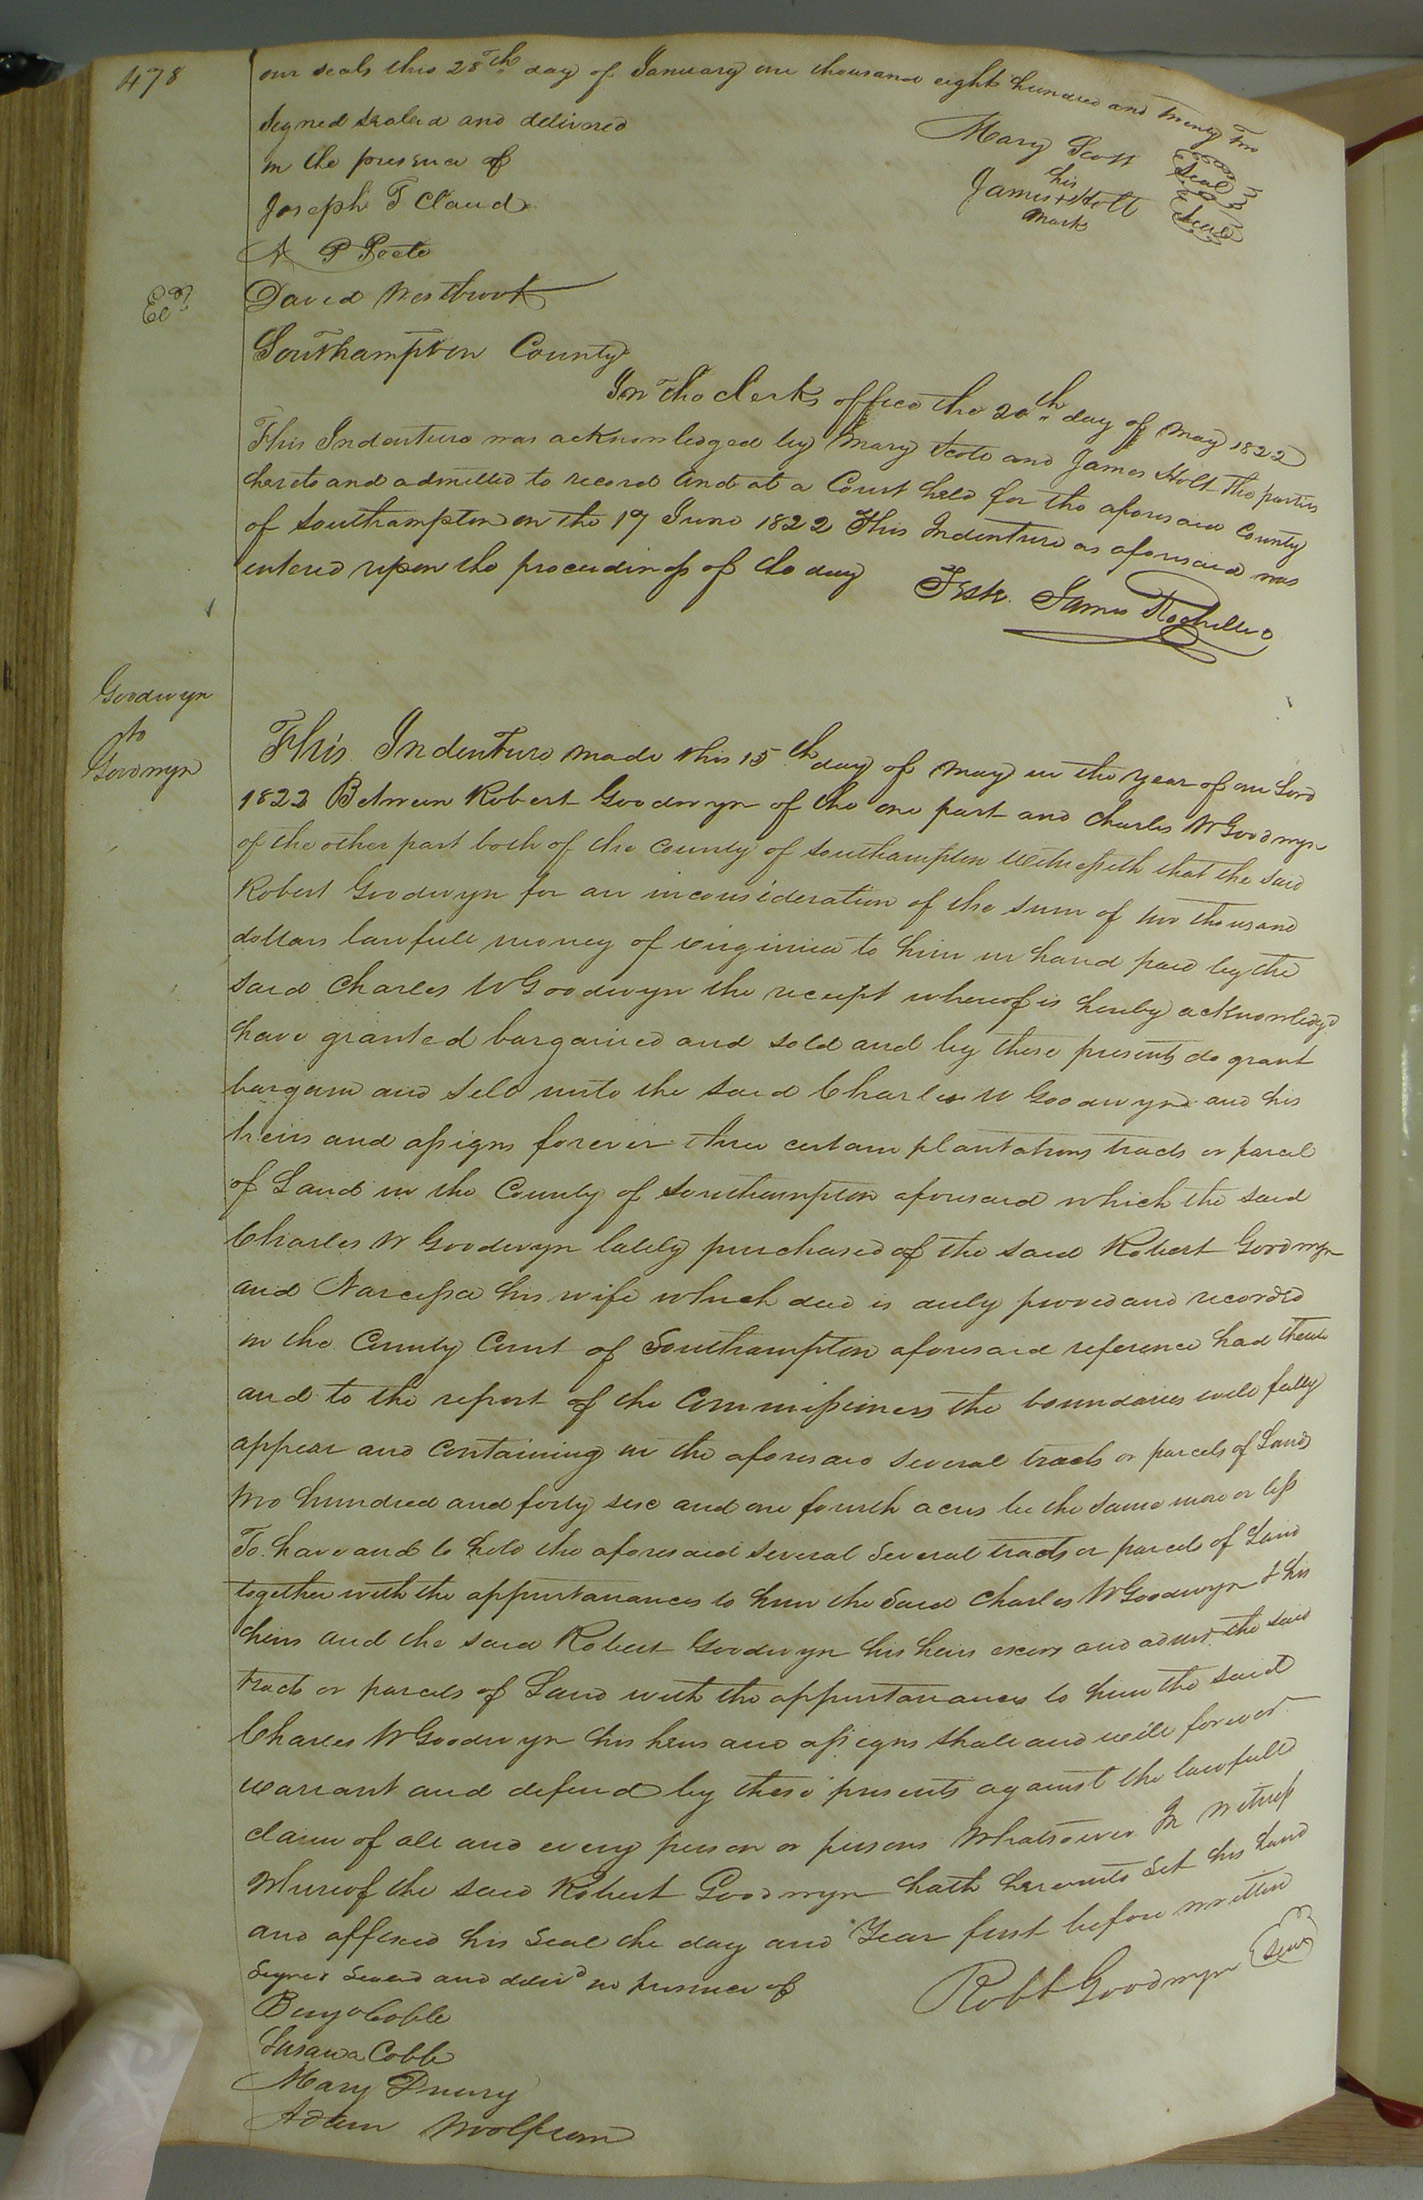 478
our seals this 28th day of January one thousand eight hundred and twenty two
Signed sealed and delivered
in the presence of
Mary Scott Seal
his
James + Holt Seal
mark
Joseph T Claud
A P Peete
David Westbrook
Southampton County
In the clerks office the 20th day of May 1822
This Indenture was acknowledged by Mary Scott and James Holt the parties
hereto and admitted to record And at a Court held for the aforesaid County
of Southampton on the 17 June 1822 This Indenture as aforesaid was
entered upon the proceedings of the day
Teste. James Rochelle
Goodwyn
to
Goodwyn
This Indenture made this 15th day of May in the year of our Lord
1822 Between Robert Goodwyn of the one part and Charles W Goodwyn
of the other part both of the County of Southampton Witnesseth that the said
Robert Goodwyn for an inconsideration of the sum of two thousand
dollars lawfull money of virginia to him in hand paid by the
said Charles W Goodwyn the receipt whereof is hereby acknowledgd
have granted bargained and sold and by these presents do grant
bargain and sell unto the said Charles W Goodwyn and his
heirs and assigns forever three certain plantations tracts or parcel
of Land in the County of Southampton aforesaid which the said
Charles W Goodwyn lately purchased of the said Robert Goodwyn
and Narcissa his wife which deed is duly proved and recorded
in the County Court of Southampton aforesaid reference had thereto
and to the report of the Commissioners the boundaries will fully
appear and containing in the aforesaid several tracts or parcels of Land
two hundred and forty six and one fourth acres be the same more or less
To have and to hold the aforesaid several several tracts or parcels of Land
together with the appurtanances to him the said Charles W Goodwyn & his
heirs and the said Robert Goodwyn his heirs excors and admrs the said
tracts or parcels of Land with the appurtanances to him the said
Charles W Goodwyn his heirs and assigns shall and will forever
warrant and defend by these presents against the lawfull
claim of all and every person or persons whatsoever In witness
Whereof the said Robert Goodwyn hath hereunto set his hand
and affixed his seal the day and Year first before written
Signed Sealed and delivd in presence of
Robt Goodwyn Seal
Benja Cobb
Susana Cobb
Mary Drury
Adam Woolfrom